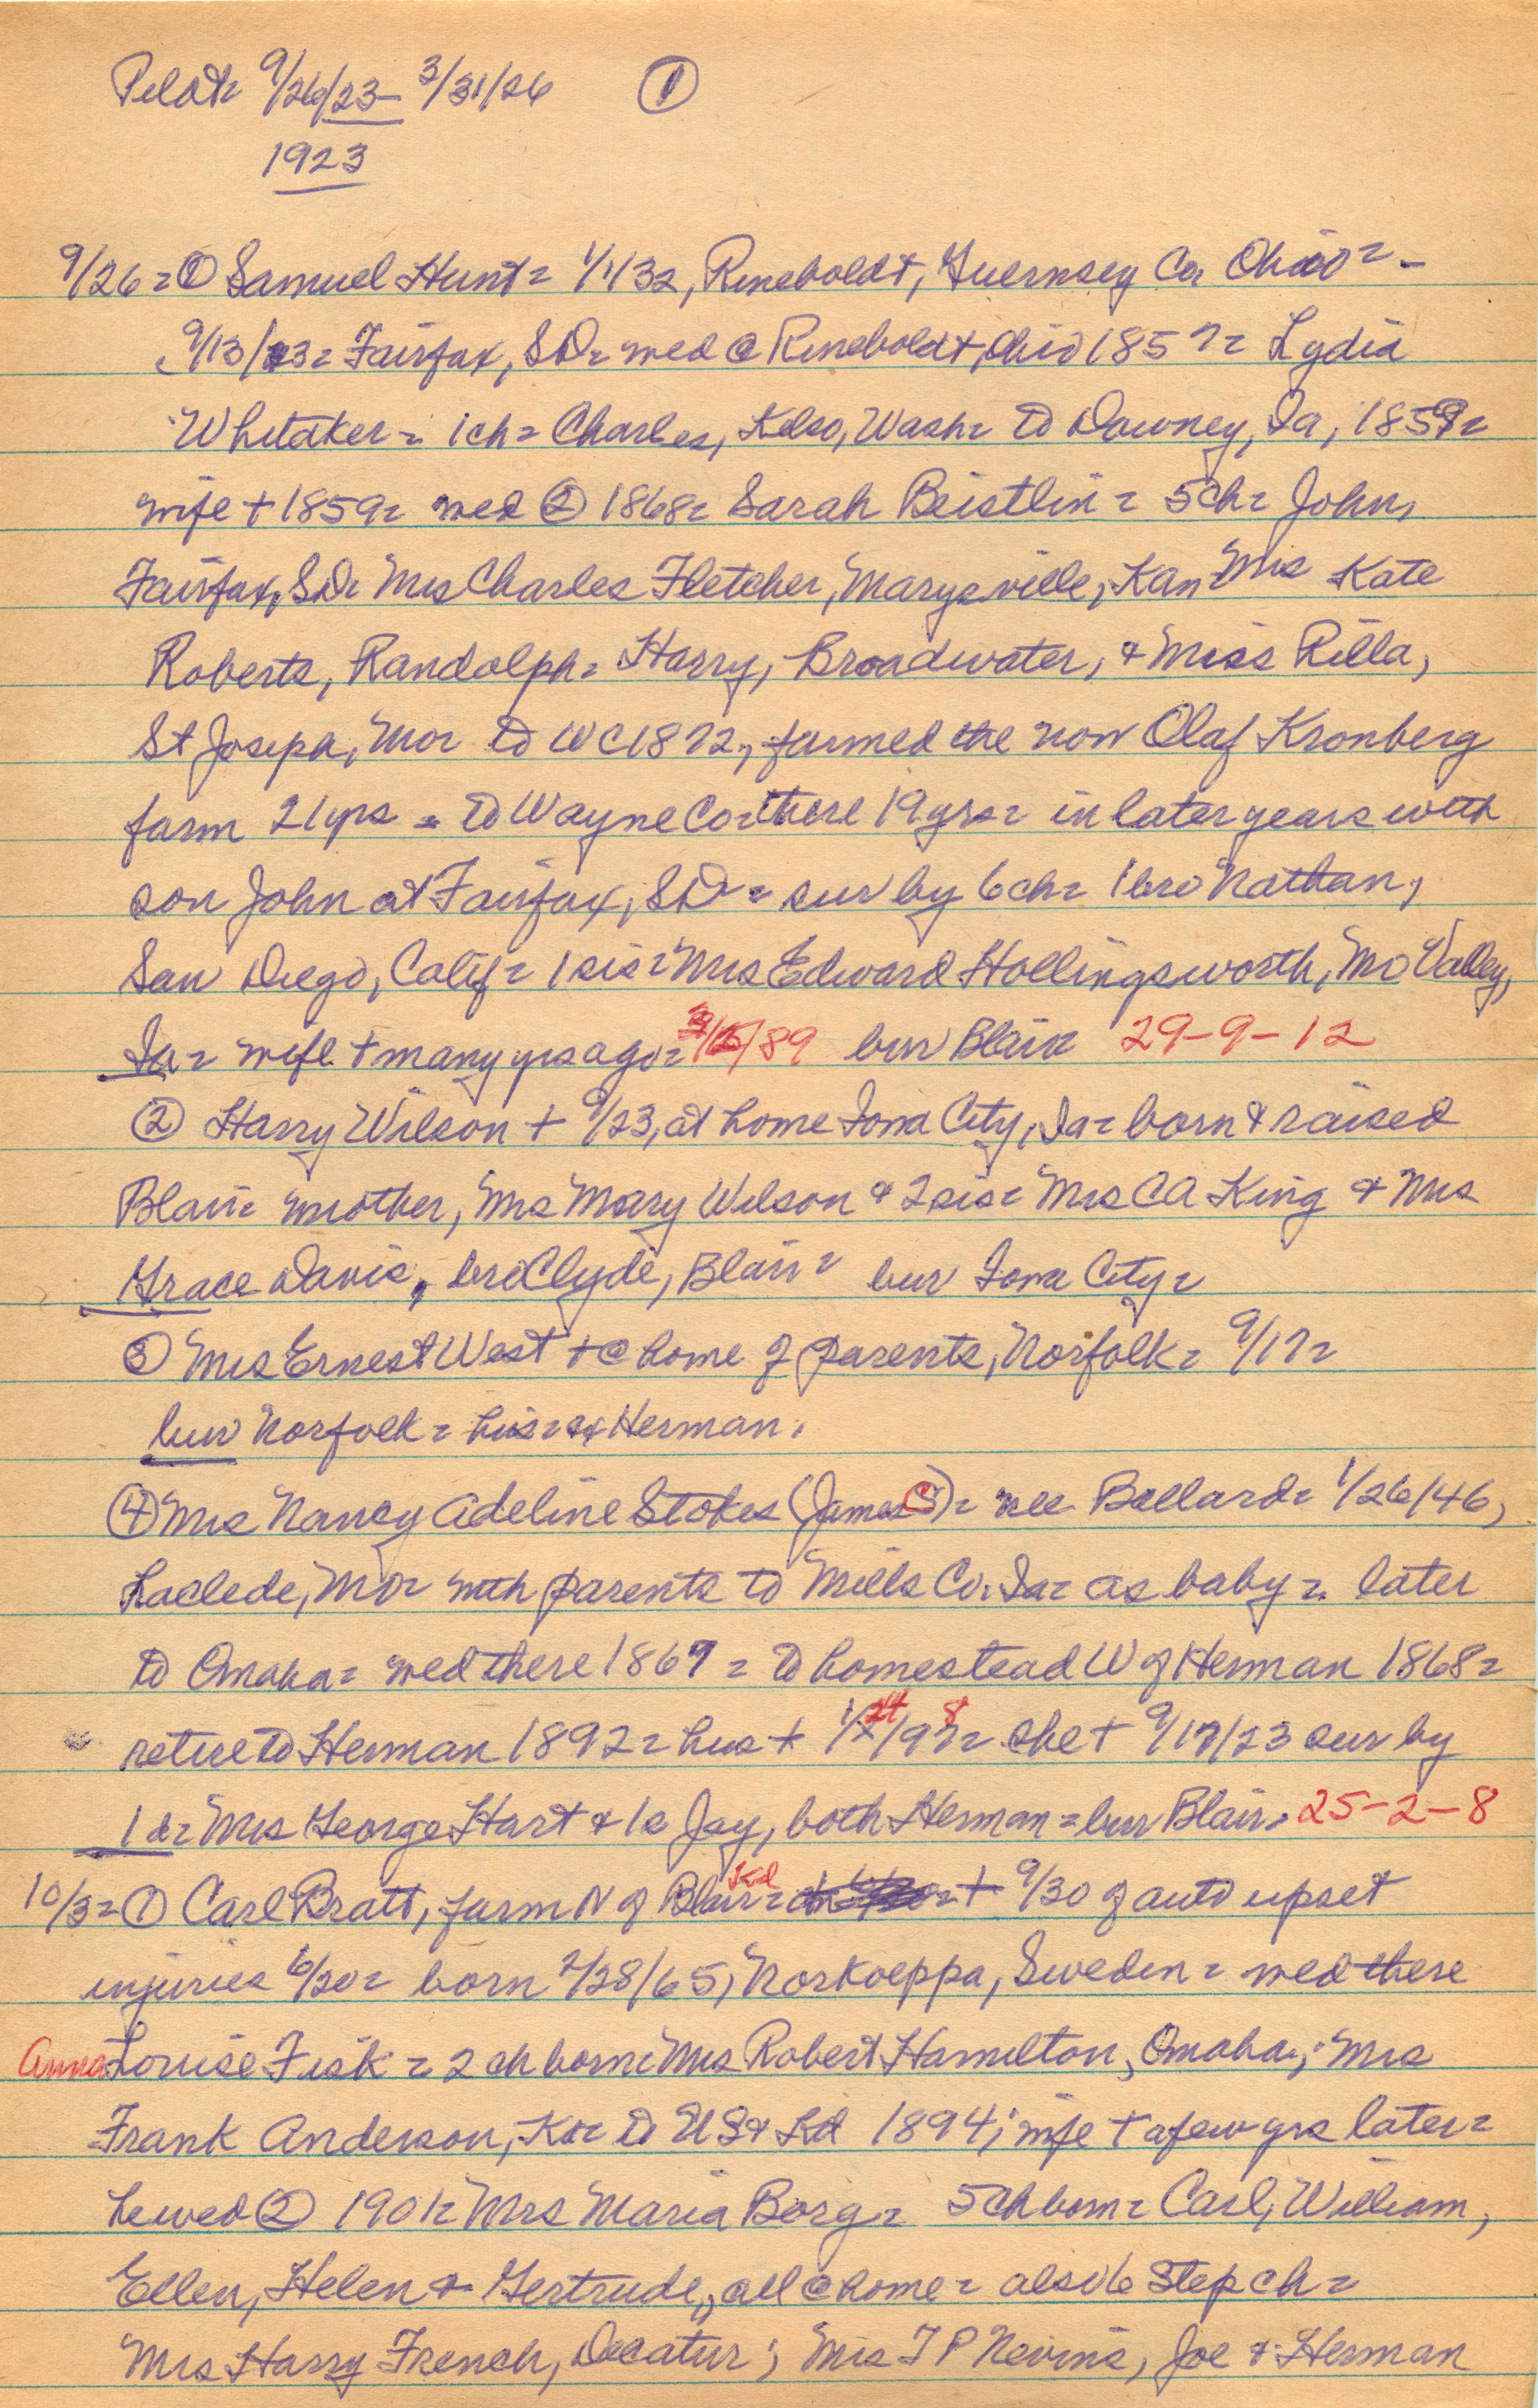 Pilot = 9/26/23 - 3/31/26 ①
1923
9/26 = ① Samuel Hunt = 1/1/32, Rineboldt, Guernsey Co Ohio = -
9/13/23 = Fairfax, SD = wed @ Rineboldt, Ohio 1857 = Lydia
Whitaker = 1 ch = Charles, Kelso, Wash = to Downey, Ia, 1859 =
wife + 1859 = wed ② 1868 = Sarah Beistlin = 5 ch = John,
Fairfax, SD = Mrs Charles Fletcher, Marysville, Kan = Mrs Kate
Roberts, Randolph = Harry, Broadwater, & Miss Rilla,
St Joseph, Mo = to WC 1872, farmed the now Olaf Kronberg
farm 21 yrs = to Wayne Co = there 19 yrs = in later years with
son John at Fairfax, SD = sur by 6 ch = 1 bro Nathan,
San Diego, Calif = 1 sis = Mrs Edward Hollingsworth, Mo Valley,
Ia = wife + many yrs ago = /89 bur Blair 29-9-12
② Harry Wilson + 9/23, at home Iowa City, Ia = born & raised
Blair = mother, Mrs Mary Wilson & 2 sis = Mrs CA King & Mrs
Grace Davis, bro Clyde, Blair = bur Iowa City =
③ Mrs Ernest West + @ home of parents, Norfolk = 9/17 =
bur Norfolk = his = Herman.
④ Mrs Nancy Adeline Stokes (James S) = nee Ballard = 1/26/46,
Laclede, Mo = with parents to Mills Co. Ia = as baby = later
to Omaha = wed there 1867 = to homestead W of Herman 1868 =
retire to Herman 1892 = hus + 1/24/98 = she + 9/17/23 sur by
1 d = Mrs George Hart & 1 s Jay, both Herman = bur Blair. 25-2-8
10/3 = ① Carl Bratt, farm N of Blair = Kd + 9/30 of auto upset
injuries 6/20 = born 2/28/65, Norkoeppa, Sweden = wed there
Anna Louise Fisk = 2 ch born = Mrs Robert Hamilton, Omaha; Mrs
Frank Anderson, K = to US & Kd 1894; wife + a few yrs later =
he wed ② 1901 = Mrs Maria Borg = 5 ch born = Carl, William,
Ellen, Helen & Gertrude, all @ home = also 6 step ch =
Mrs Harry French, Decatur; Mrs T P Nevins, Joe & Herman